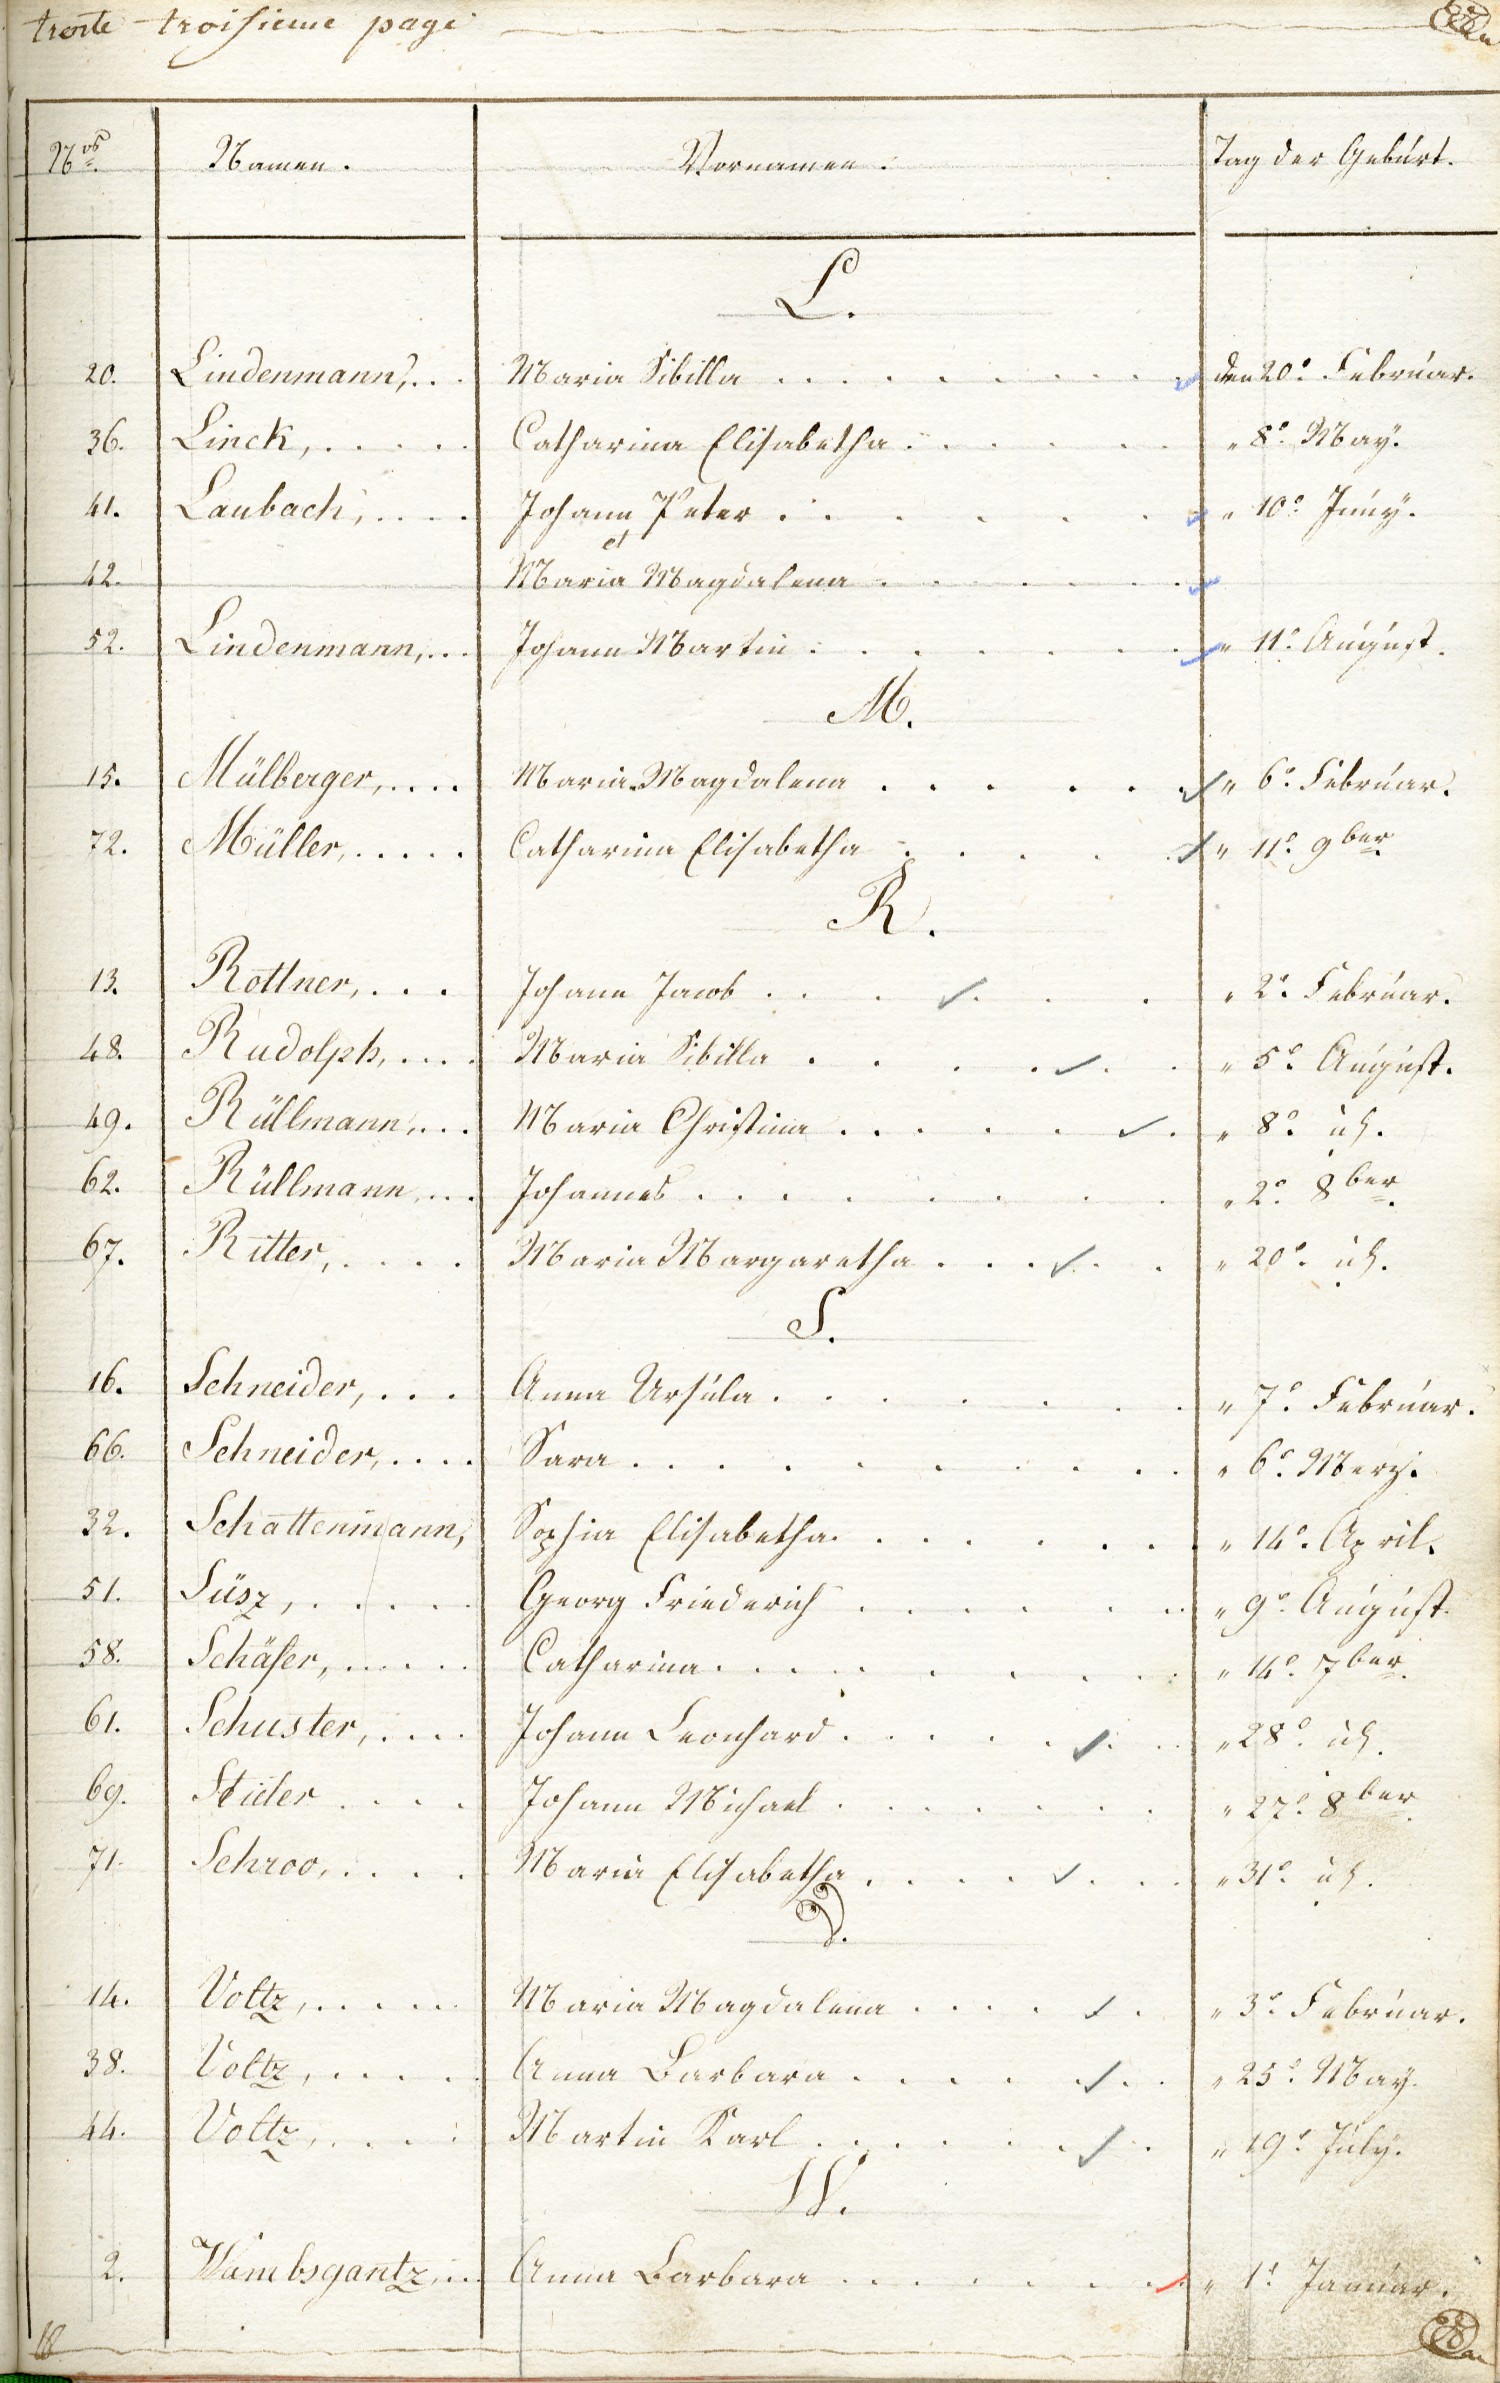 trente troisieme page
Nos. Namen. Vornamen. Tag der Geburt.
L.
20. Lindenmann, . . . Maria Sibilla . . . . . . . . . den 20e. Februar.
36. Linck, . . . . . Catharina Elisabetha . . . . . . " 8e. May.
41. Laubach, . . . . Johann Peter . . . . . . . " 10e. Juny.
et
42. Maria Magdalena . . . . . .
52. Lindenmann, . . . Johann Martin . . . . . . . " 11e. August.
M.
15. Mülberger, . . . . Maria Magdalena . . . . . . " 6e. Februar.
72. Müller, . . . . . Catharina Elisabetha . . . . . " 11e. 9ber.
R.
13. Rottner, . . . Johann Jacob . . . . . . " 2e. Februar.
48. Rudolph, . . . . Maria Sibilla . . . . . . " 5e. August.
49. Rüllmann, . . . Maria Christina . . . . . . " 8e. id.
62. Rüllmann, . . . Johannes . . . . . . . . " 2e. 8ber.
67. Ritter, . . . . Maria Margaretha . . . . . " 20e. id.
S.
16. Schneider, . . . Anna Ursula . . . . . . . " 7e. Februar.
66. Schneider, . . . . Sara . . . . . . . . . " 6e. Merz.
32. Schattenmann, Sophia Elisabetha . . . . . . . " 14e. April.
51. Süsz, . . . . . Georg Friederich . . . . . . " 9e. August.
58. Schäfer, . . . . . Catharina . . . . . . . . " 14e. 7ber.
61. Schuster, . . . . Johann Leonhard . . . . . . . " 28e. id.
69. Stider . . . . Johann Michael . . . . . . . " 27e. 8ber.
71. Schroo, . . . . Maria Elisabetha . . . . . . . " 31e. id.
V.
14. Voltz, . . . . . Maria Magdalena . . . . . . " 3e. Februar.
38. Voltz, . . . . . Anna Barbara . . . . . . . " 25e. May.
44. Voltz, . . . . Martin Karl . . . . . . . " 19e. July.
W.
2. Wambsgantz, . . . Anna Barbara . . . . . . . " 1e. Januar.
18